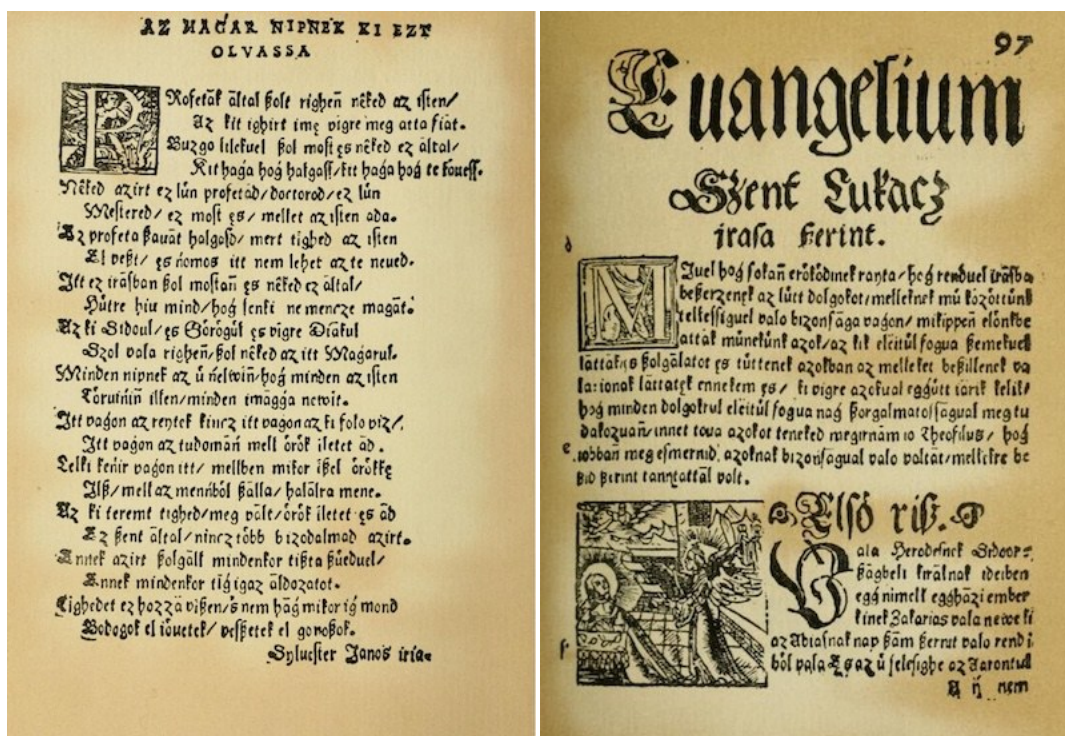 AZ MAǴAR NIPNEK KI EZT
OLVASSA
PRofetāk āltal ßolt righeń nêked az iſten/
Az kit ighirt imę vigre meg atta fiāt.
Buzgo lilekuel ßol moſt ęs nêked ez āltal/
Kit haǵa hoǵ halgaſſ/kit haǵa hoǵ te köueſſ.
Nêked azirt ez lün profetād/doctorod/ez lün
Meſtered/ ez moſt ęs/ mellet az iſten ada.
Az profeta ßauāt halgaſd/ mert tighed az iſten
El veßt/ ęs ńomos itt nem lehet az te neued.
Itt ez irāsban ßol moſtań ęs nêked ez āltal/
Hütre hiu mind/hoǵ ſenki ne mencze magāt.
Az ki Sidoul/ęs Görögül ęs vigre Diākul
Szol vala righeń/ßol nêked az itt Maǵarul.
Minden nipnek az ü ńelwiń/hoǵ minden az iſten
Törutńiń illen/minden imāǵǵa newit.
Itt vaǵon az reytek kincz itt vaǵon az ki folo viz/
Itt vaǵon az tudomāń mell örök iletet ād.
Lelki keńir vaǵon itt/ mellben mikor ißel örökkę
Ilß/mell az menńből ßālla/halālra mene.
Az ki teremt tighed/meg vālt/örök iletet ęs ād
Ez ßent āltal/nincz több bizodalmad azirt.
Ennek azirt ßolgāll mindenkor tißta ßüueduel/
Ennek mindenkor tiǵ igaz āldozatot.
Tighedet ez hozzā vißen/s nem hāǵ mikor iǵ mond
Bodogok el iöuetek/ veßßetek el gonoßok.
Syluester Janos iria.
97
Euangelium
Szent Lukacz
iraſa ßerint.
MIuel hoǵ ſokań erőködinek rayta/hoǵ renduel irāſba
beßerzenek az lütt dolgokot/melleknek mü közöttünk
telleſſiguel valo bizonſāga vaǵon/ mikippeń elönkbe
attāk münekünk azok/az kik eleitül fogua ßemekuel
lāttāk/s ßolgālatot ęs tüttenek azokban az melleket beßillenek va
la: ionak lāttatęk ennekem ęs/ ki vigre azokual eǵǵütt iārik kelik/
hoǵ minden dolgokrul eleitül fogua naǵ ßorgalmatoſſāgual meg tu
dakozuań/innet toua azokot teneked megirnām io Theofilus/ hoǵ
iobbań meg eſmernid azoknak bizonſāgual valo voltāt/mellekre be
ßid ßerint tanyttattāl volt.
Elsö riß.
Vala Herodesnek Sidoor-
ßāgbeli kirālnak ideiben
eǵǵ nimell eǵǵhāzi ember
kinek Zakarias vala neue ki
az Abiaſnak nap ßām ßerint valo rendi
ből vala Es az ü feleſighe az Aarontul
A ij nem